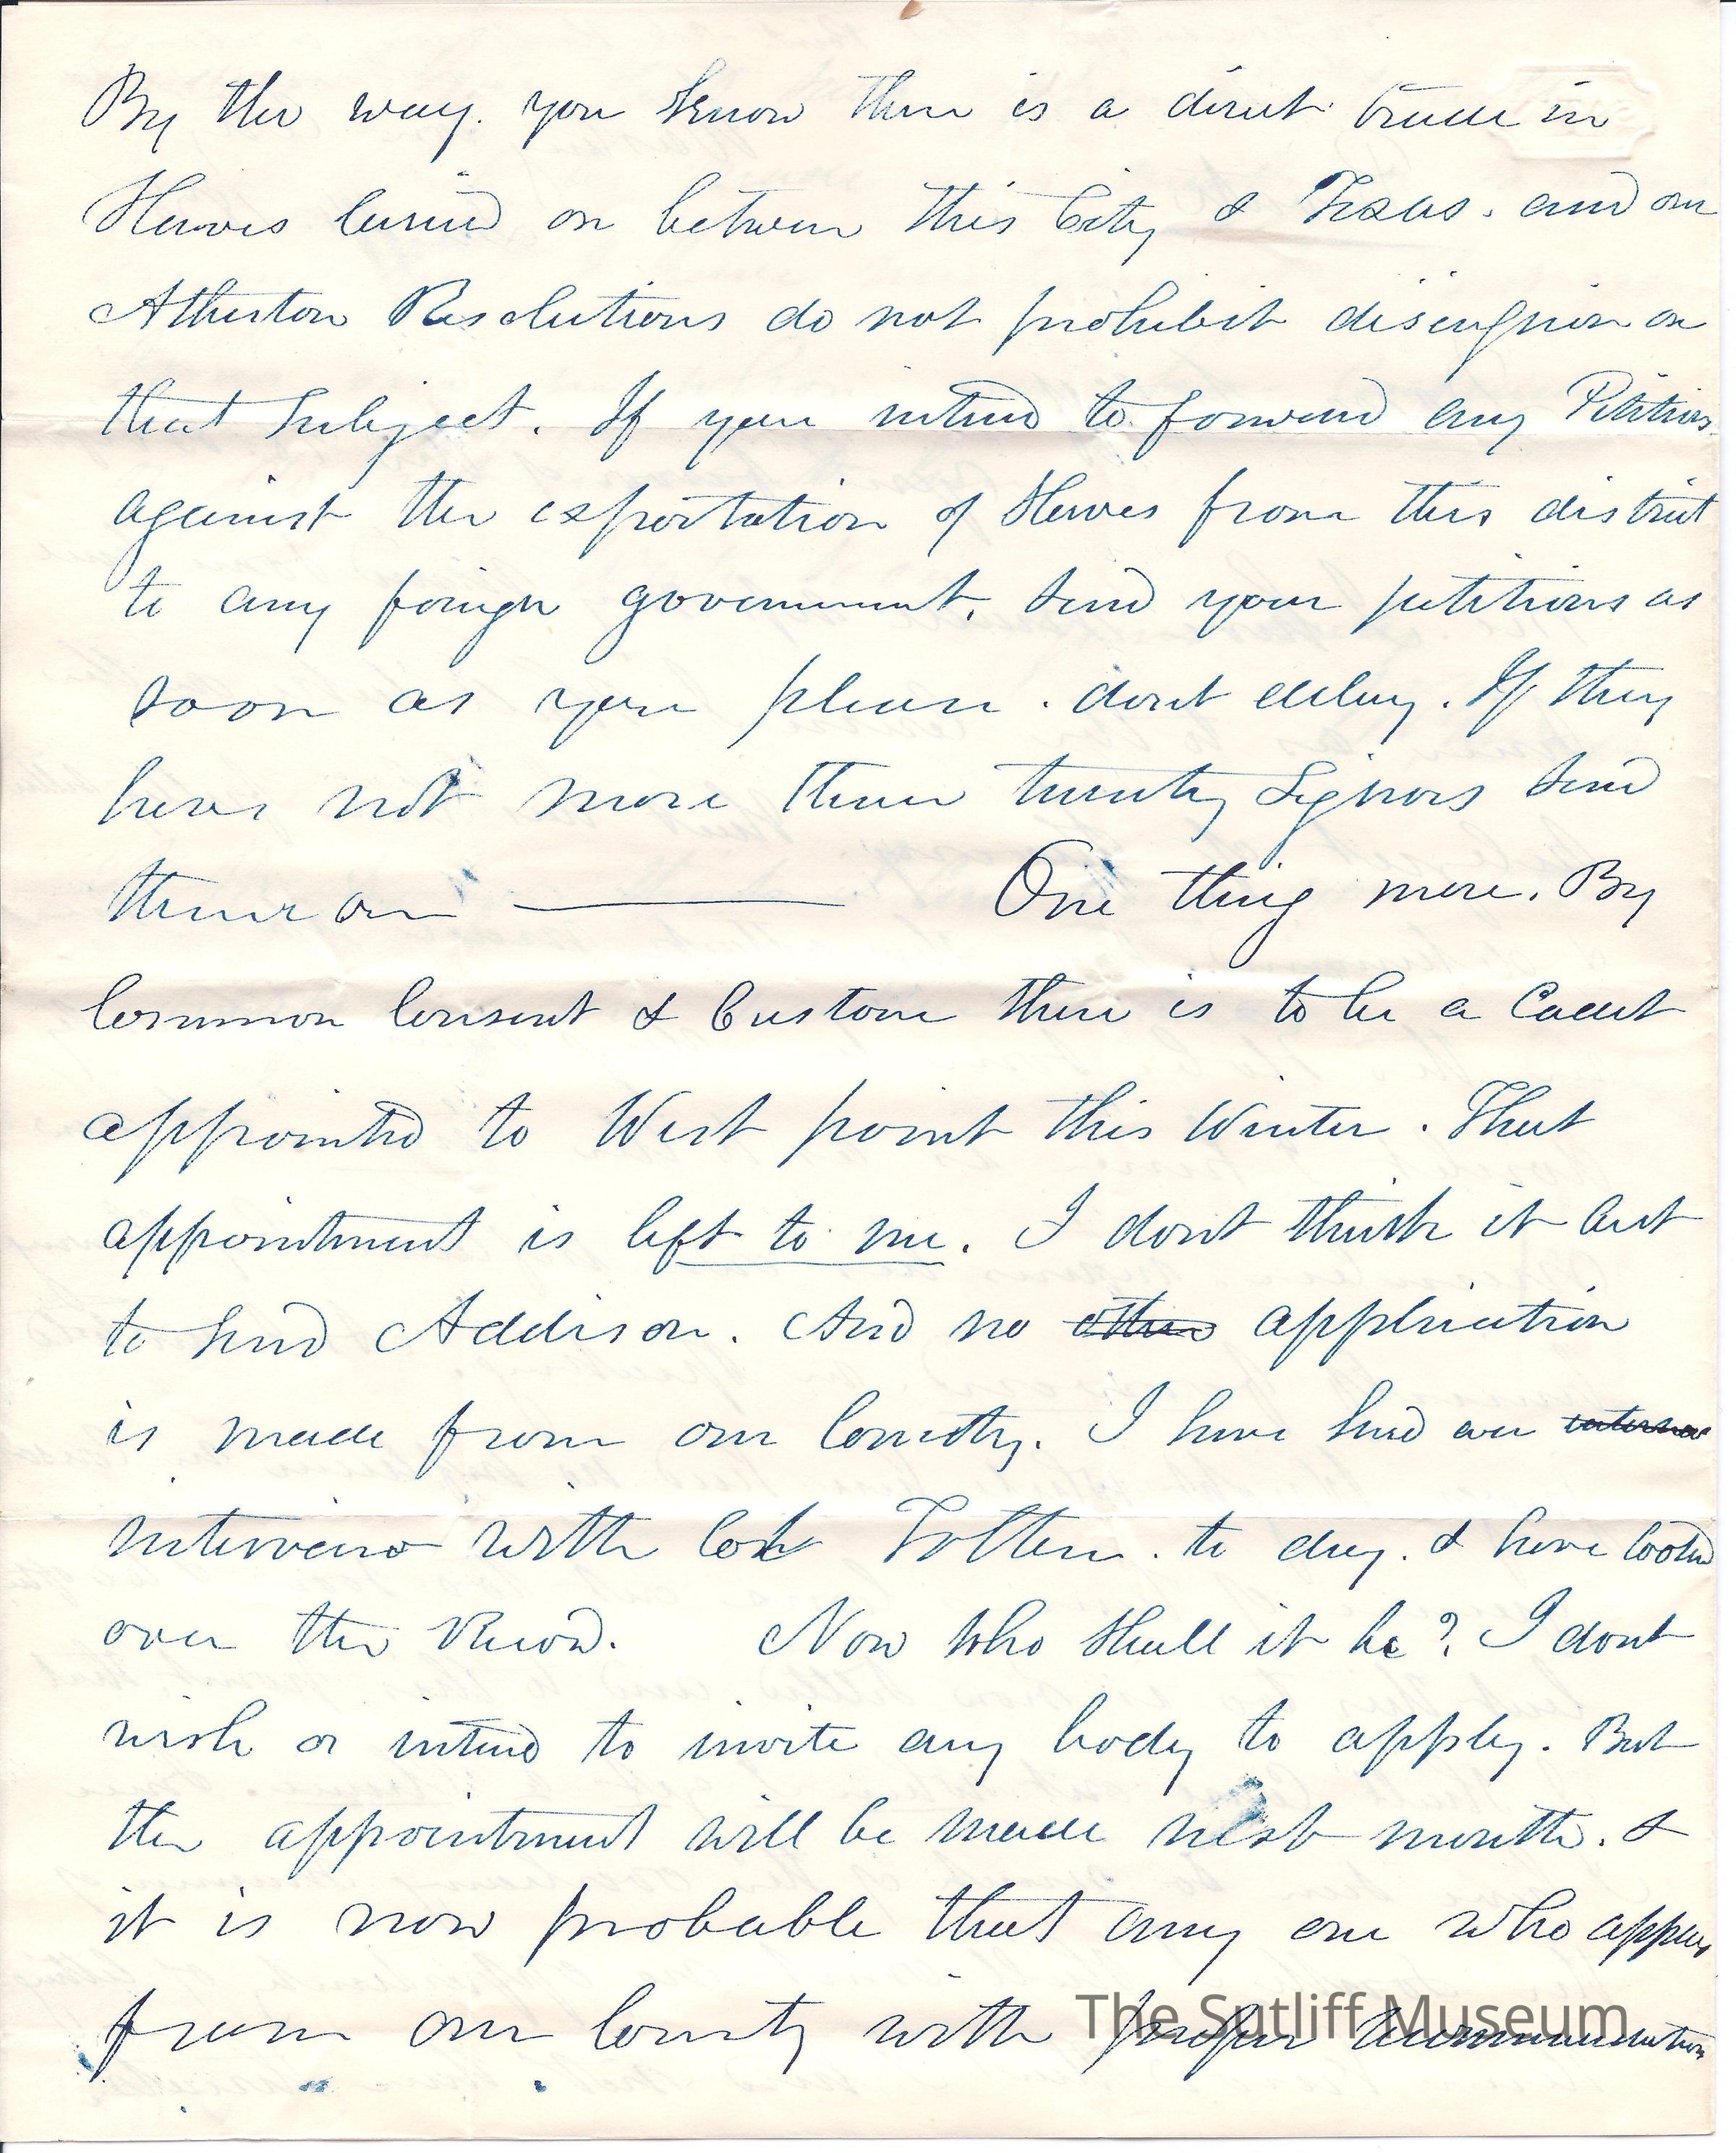 By the way. you know there is a direct trade in
Slaves carried on between this City & Texas. and our
Atherton Resolutions do not prohibit discussion on
that subject. If you intend to forward any Petitions
against the exportation of Slaves from this district
to any foreign government, send your petitions as
soon as you please. dont delay. If they
have not more than twenty signers send
them on ——— One thing more. By
Common Consent & Custom there is to be a Cadet
appointed to West point this Winter. That
appointment is left to me. I dont think it best
to send Addison. And no other application
is made from our County. I have had an
interview with Col Totten. to day. & have looked
over the Record. Now who shall it be? I dont
wish or intend to invite any body to apply. But
the appointment will be made next month. &
it is now probable that any one who applies
from our County with proper recommendations
The Sutliff Museum